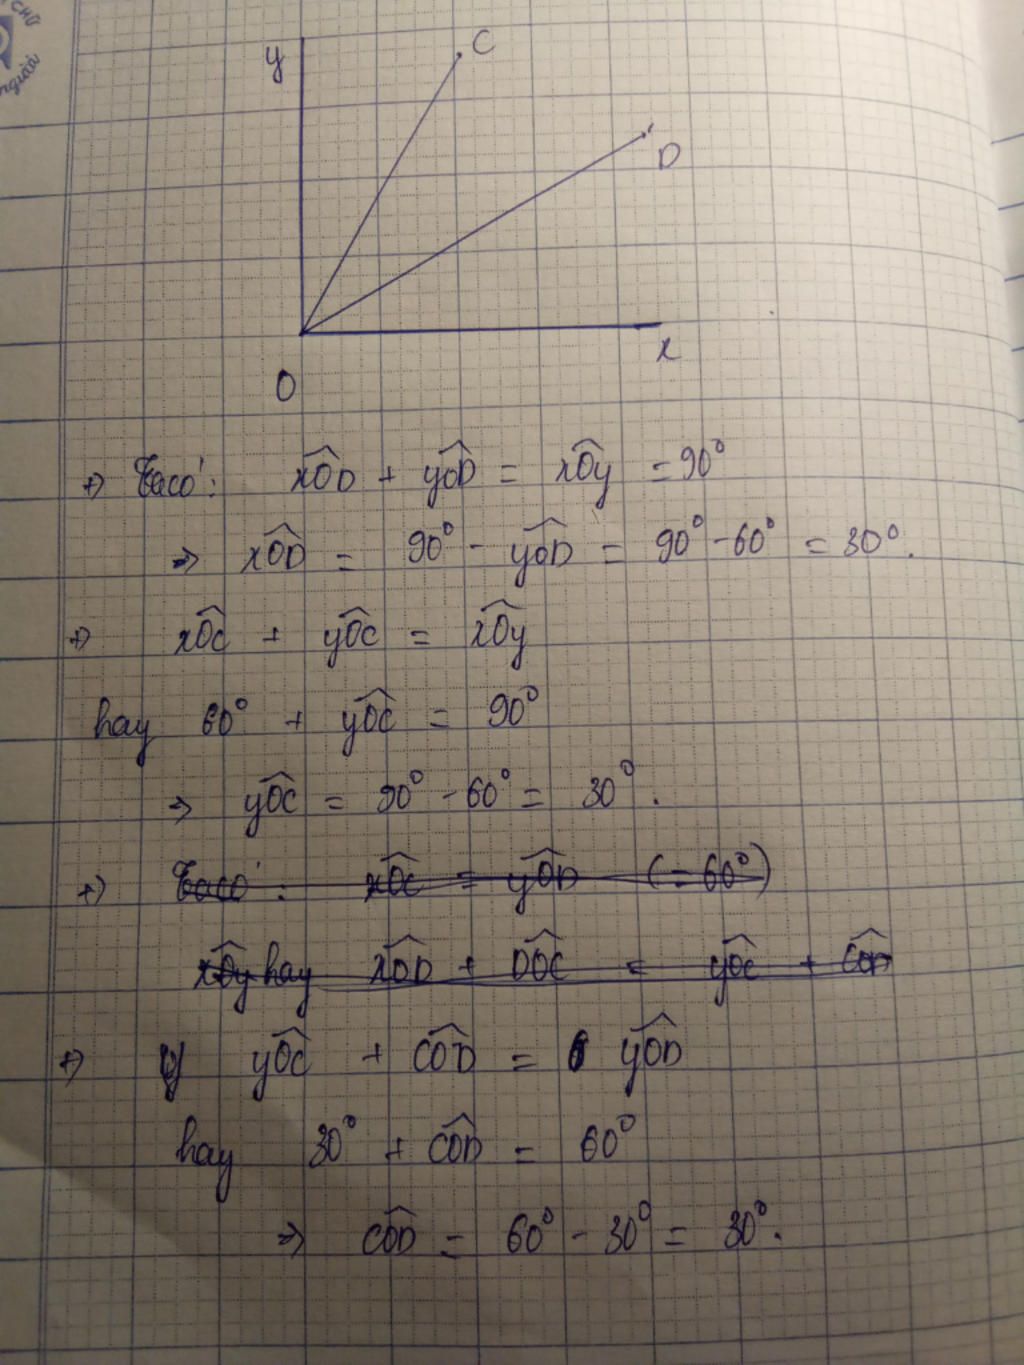 CHỮ
người
y
C
D
x
O
+) Ta có: xOD + yOD = xOy = 90°
=> xOD = 90° - yOD = 90° - 60° = 30°.
+) xOC + yOC = xOy
hay 60° + yOC = 90°
=> yOC = 90° - 60° = 30°.
+) Ta có: xOC = yOD (= 60°)
xOy hay xOD + DOC = yOC + COD
+) yOC + COD = yOD
hay 30° + COD = 60°
=> COD = 60° - 30° = 30°.